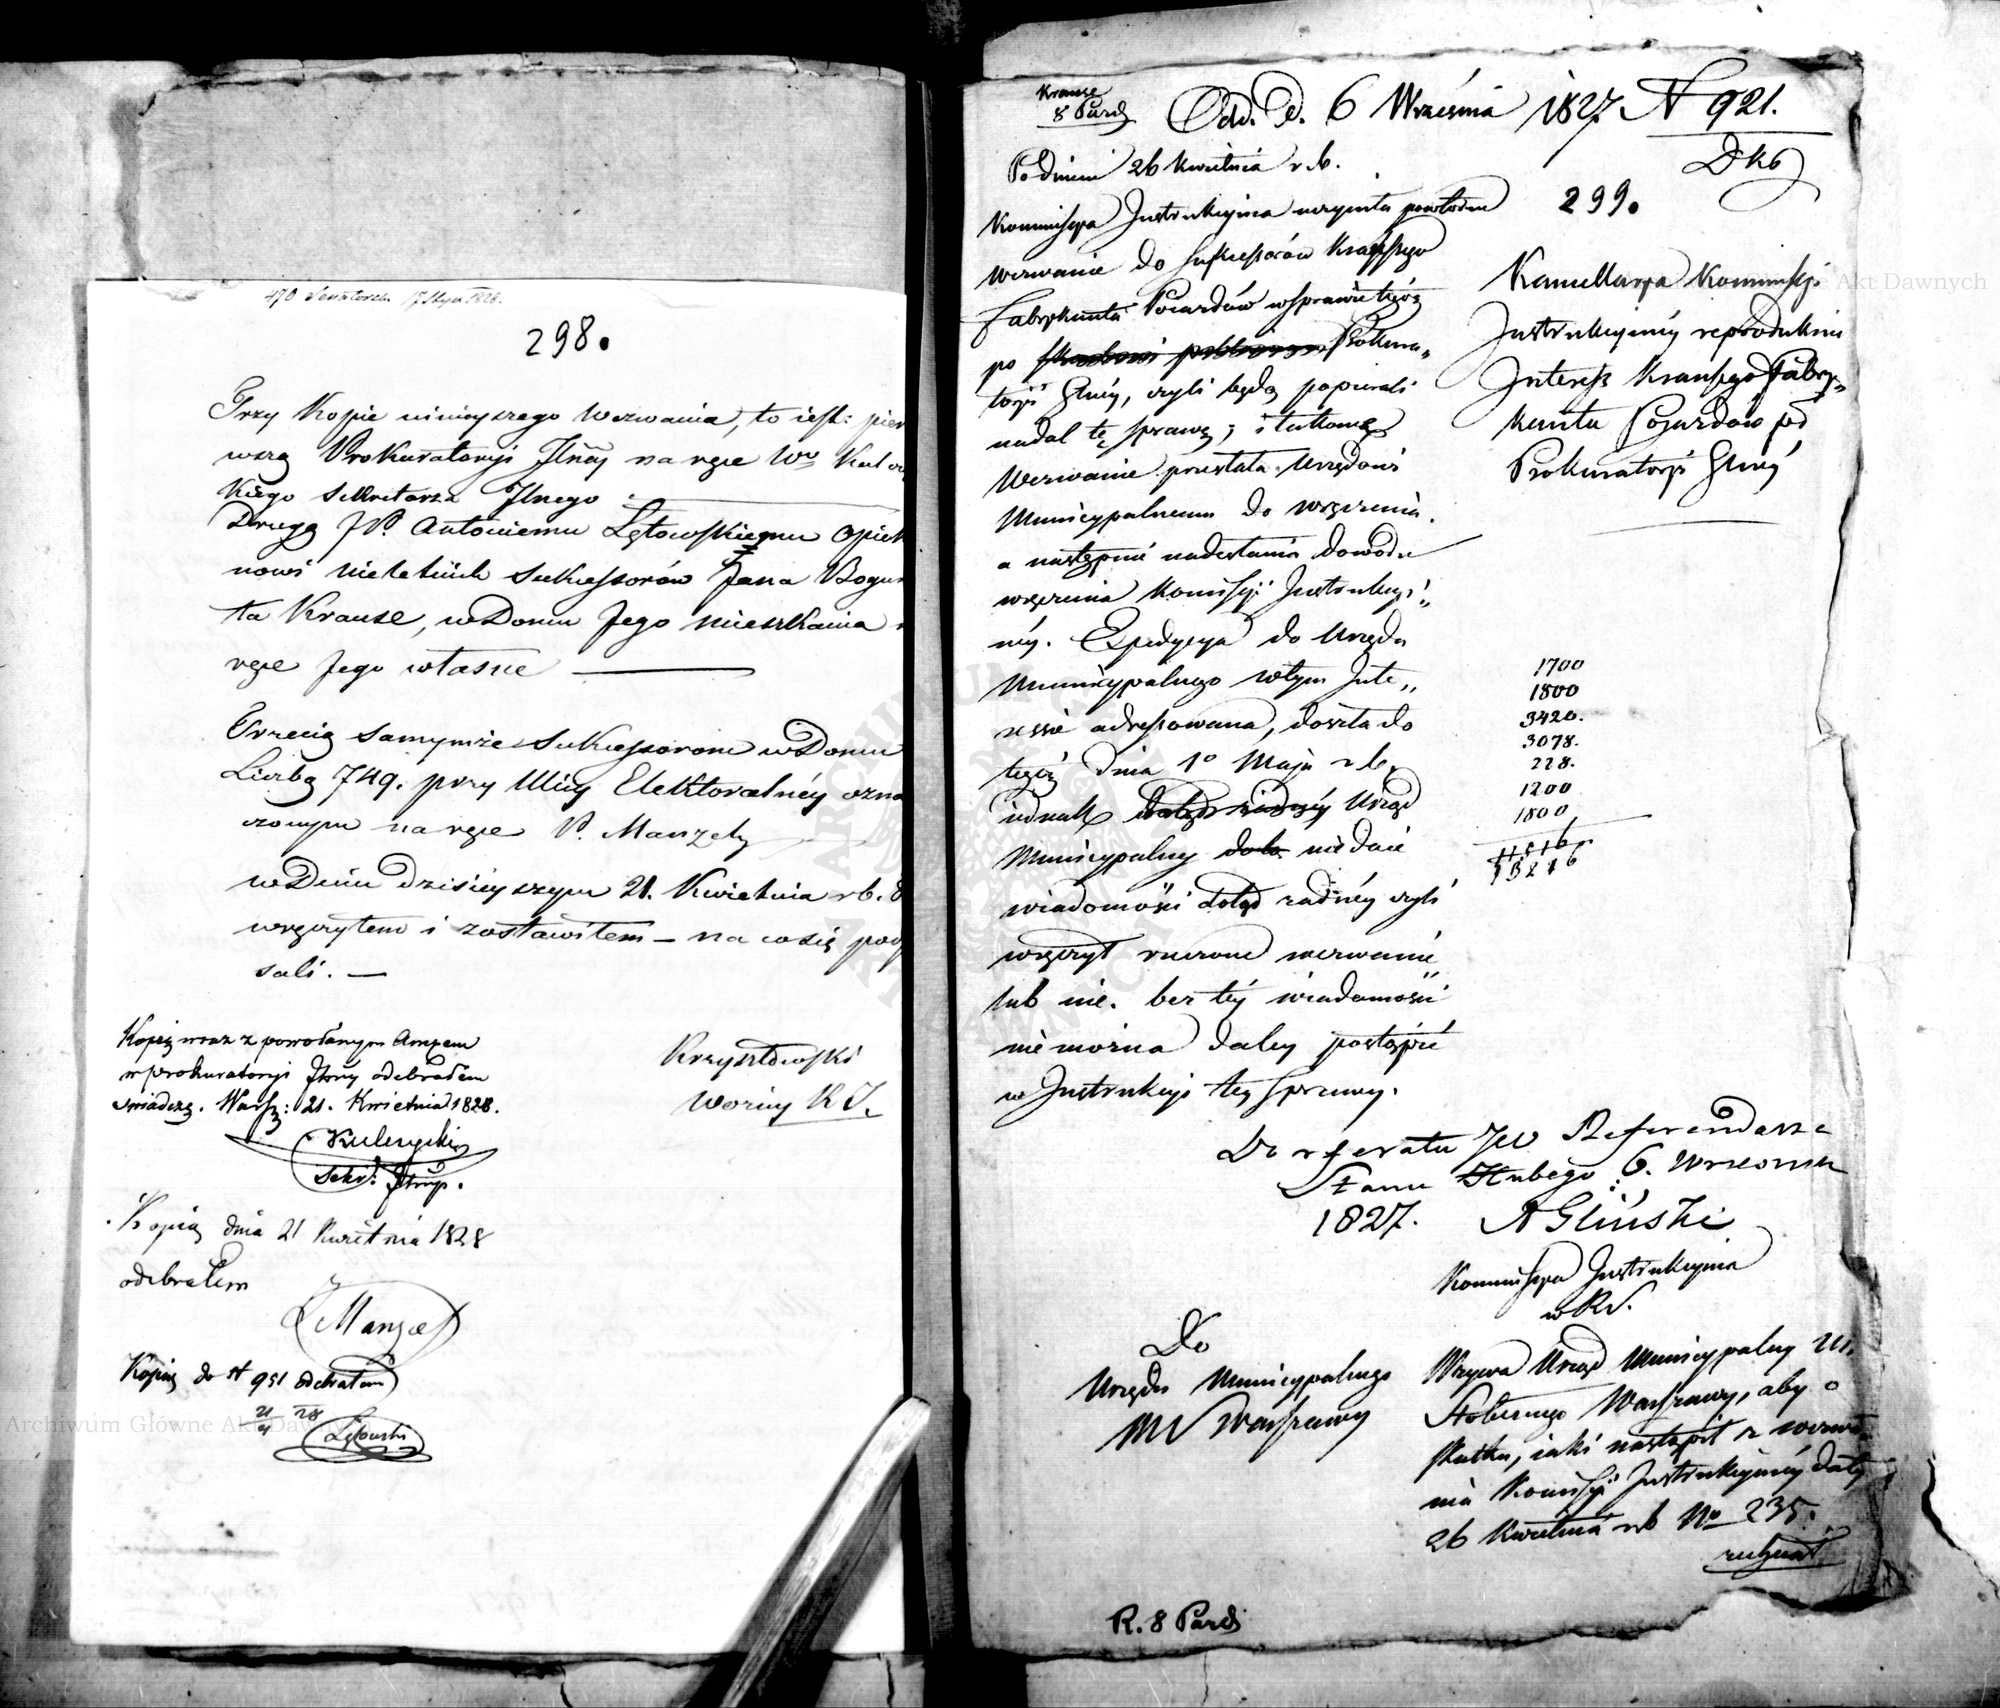 470 Senatorska 17 Stycz 1828.
298.
Przy Kopie ninieyszego Wezwania, to iest: pier
wszą Prokuratoryi Jlney na ręce Wo
kiego Sekretarza Jlnego
Drugą JP. Antoniemu Lętowskiemu Opiek
nowi nieletnich Sukcessorów Jana Bogu
ta Krause, w Domu Jego mieszkania
ręce Jego własne
Trzecią samymże Sukcessorom w Domu
Liczbą 749. przy Ulicy Elektoralney ozna
czonym na ręce P. Manzel
w Dniu dzisieyszym 21. Kwietnia rb.
wręczyłem i zostawiłem – na co się pod
sali. —
Kopię wraz z powołanym Anxem
w prokuratoryi Jlney odebrałem
świadczę. Warsz: 21. Kwietnia 1828.
Kuleszycki
Sekr:
Krzyształowski
Wozny R S.
Kopię dnia 21 Kwietnia 1828
odebrałem
Manzel
Kopię do N 951 odebrałem
21/4 28
Lętowski
Krause
8 Pazdz
Odd. d. 6 Września 1827 N 921.
Dk6
299.
Pod dniem 26 Kwietnia r.b.
Kommissya Instrukcyina uczyniła powtórne
wezwanie do Sukcessorów Krausego
Fabrykanta Pojazdów w sprawie tegoż
po Prokura„
toryi Glney, czyli będą popierali
nadal tę sprawę; i takowe
Wezwanie przesłała Urzędowi
Municypalnemu do wręczenia
a następnie nadesłania dowodu
wręczenia Komissyi Instrukcyi„
ney. Expedycya do Urzędu
Municypalnego w tym Inte„
ressie adressowana, doszła do
tegoż dnia 1o Maja r.b.
iednak Urząd
Municypalny nie daie
wiadomości dotąd żadney czyli
wręczył rzeczone wezwanie
lub nie. bez tey wiadomości
nie można daley postąpić
w Instrukcyi tey sprawy.
Kancellarya Kommissyi
Instrukcyiney reprodukuie
Interess Krausego Fabry„
kanta Pojazdów pod
Prokuratoryi Glney
1700
1800
3420.
3078.
228.
1200
1800
11516
13216
Do referatu JW Referendarza
Stanu Hubego. 6. Września
1827. A Gliński
Kommissya Instrukcyina
w RS.
Do
Urzędu Municypalnego
MS Warszawy
Wzywa Urząd Municypalny M.
Stołecznego Warszawy, aby o
skutku, iaki nastąpił z wezwa
nia Komissyi Instrukcyiney daty
26 Kwietnia rb No 235.
R. 8 Pazdz